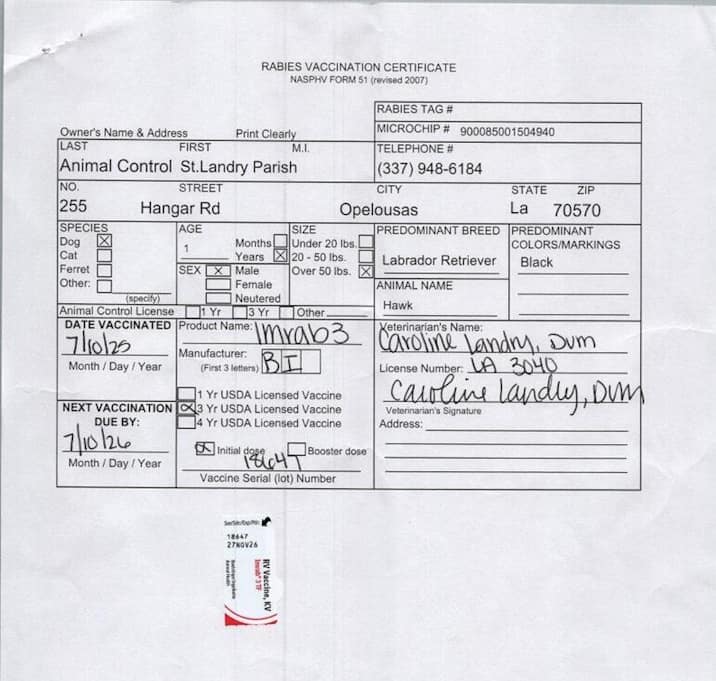 RABIES VACCINATION CERTIFICATE
NASPHV FORM 51 (revised 2007)
RABIES TAG #
Owner's Name & Address Print Clearly
MICROCHIP # 900085001504940
LAST FIRST M.I.
TELEPHONE #
Animal Control St.Landry Parish
(337) 948-6184
NO. STREET CITY STATE ZIP
255 Hangar Rd Opelousas La 70570
SPECIES
Dog X
Cat
Ferret
Other:
(specify)
AGE
1
Months
Years X
SEX X Male
Female
Neutered
SIZE
Under 20 lbs.
20 - 50 lbs.
Over 50 lbs. X
PREDOMINANT BREED
Labrador Retriever
ANIMAL NAME
Hawk
PREDOMINANT
COLORS/MARKINGS
Black
Animal Control License 1 Yr 3 Yr Other
DATE VACCINATED
7/10/25
Month / Day / Year
NEXT VACCINATION
DUE BY:
7/10/26
Month / Day / Year
Product Name: Imrab3
Manufacturer:
(First 3 letters) BI
1 Yr USDA Licensed Vaccine
X 3 Yr USDA Licensed Vaccine
4 Yr USDA Licensed Vaccine
X Initial dose Booster dose
18647
Vaccine Serial (lot) Number
Veterinarian's Name:
Caroline Landry, DVM
License Number: LA 3040
Caroline Landry, DVM
Veterinarian's Signature
Address:
18647
27NOV26
RV Vaccine, KV
Imrab® 3 TF